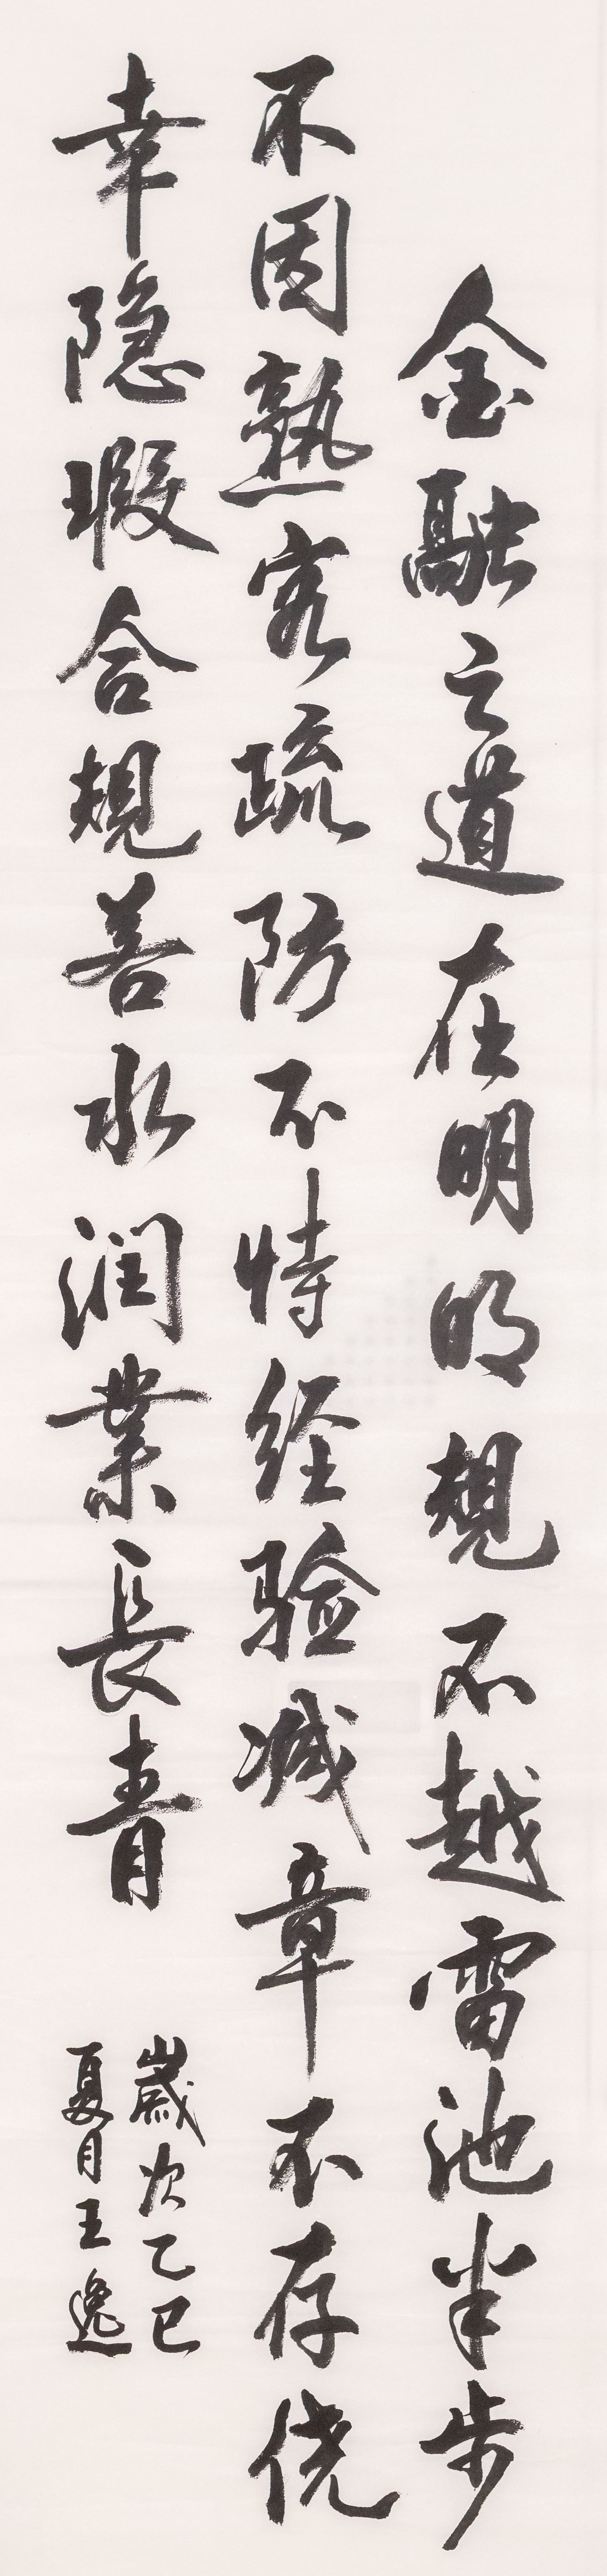 金融之道在明明規不越雷池半步
不因熟客疏防不恃经验减章不存侥
幸隐瑕合規善水润業長青
歲次乙巳
夏月王逸